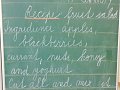 Recipe fruit salad
Ingredience apples,
blackberries,
currant, nuts, honey
and yoghurt
cut all and mix it